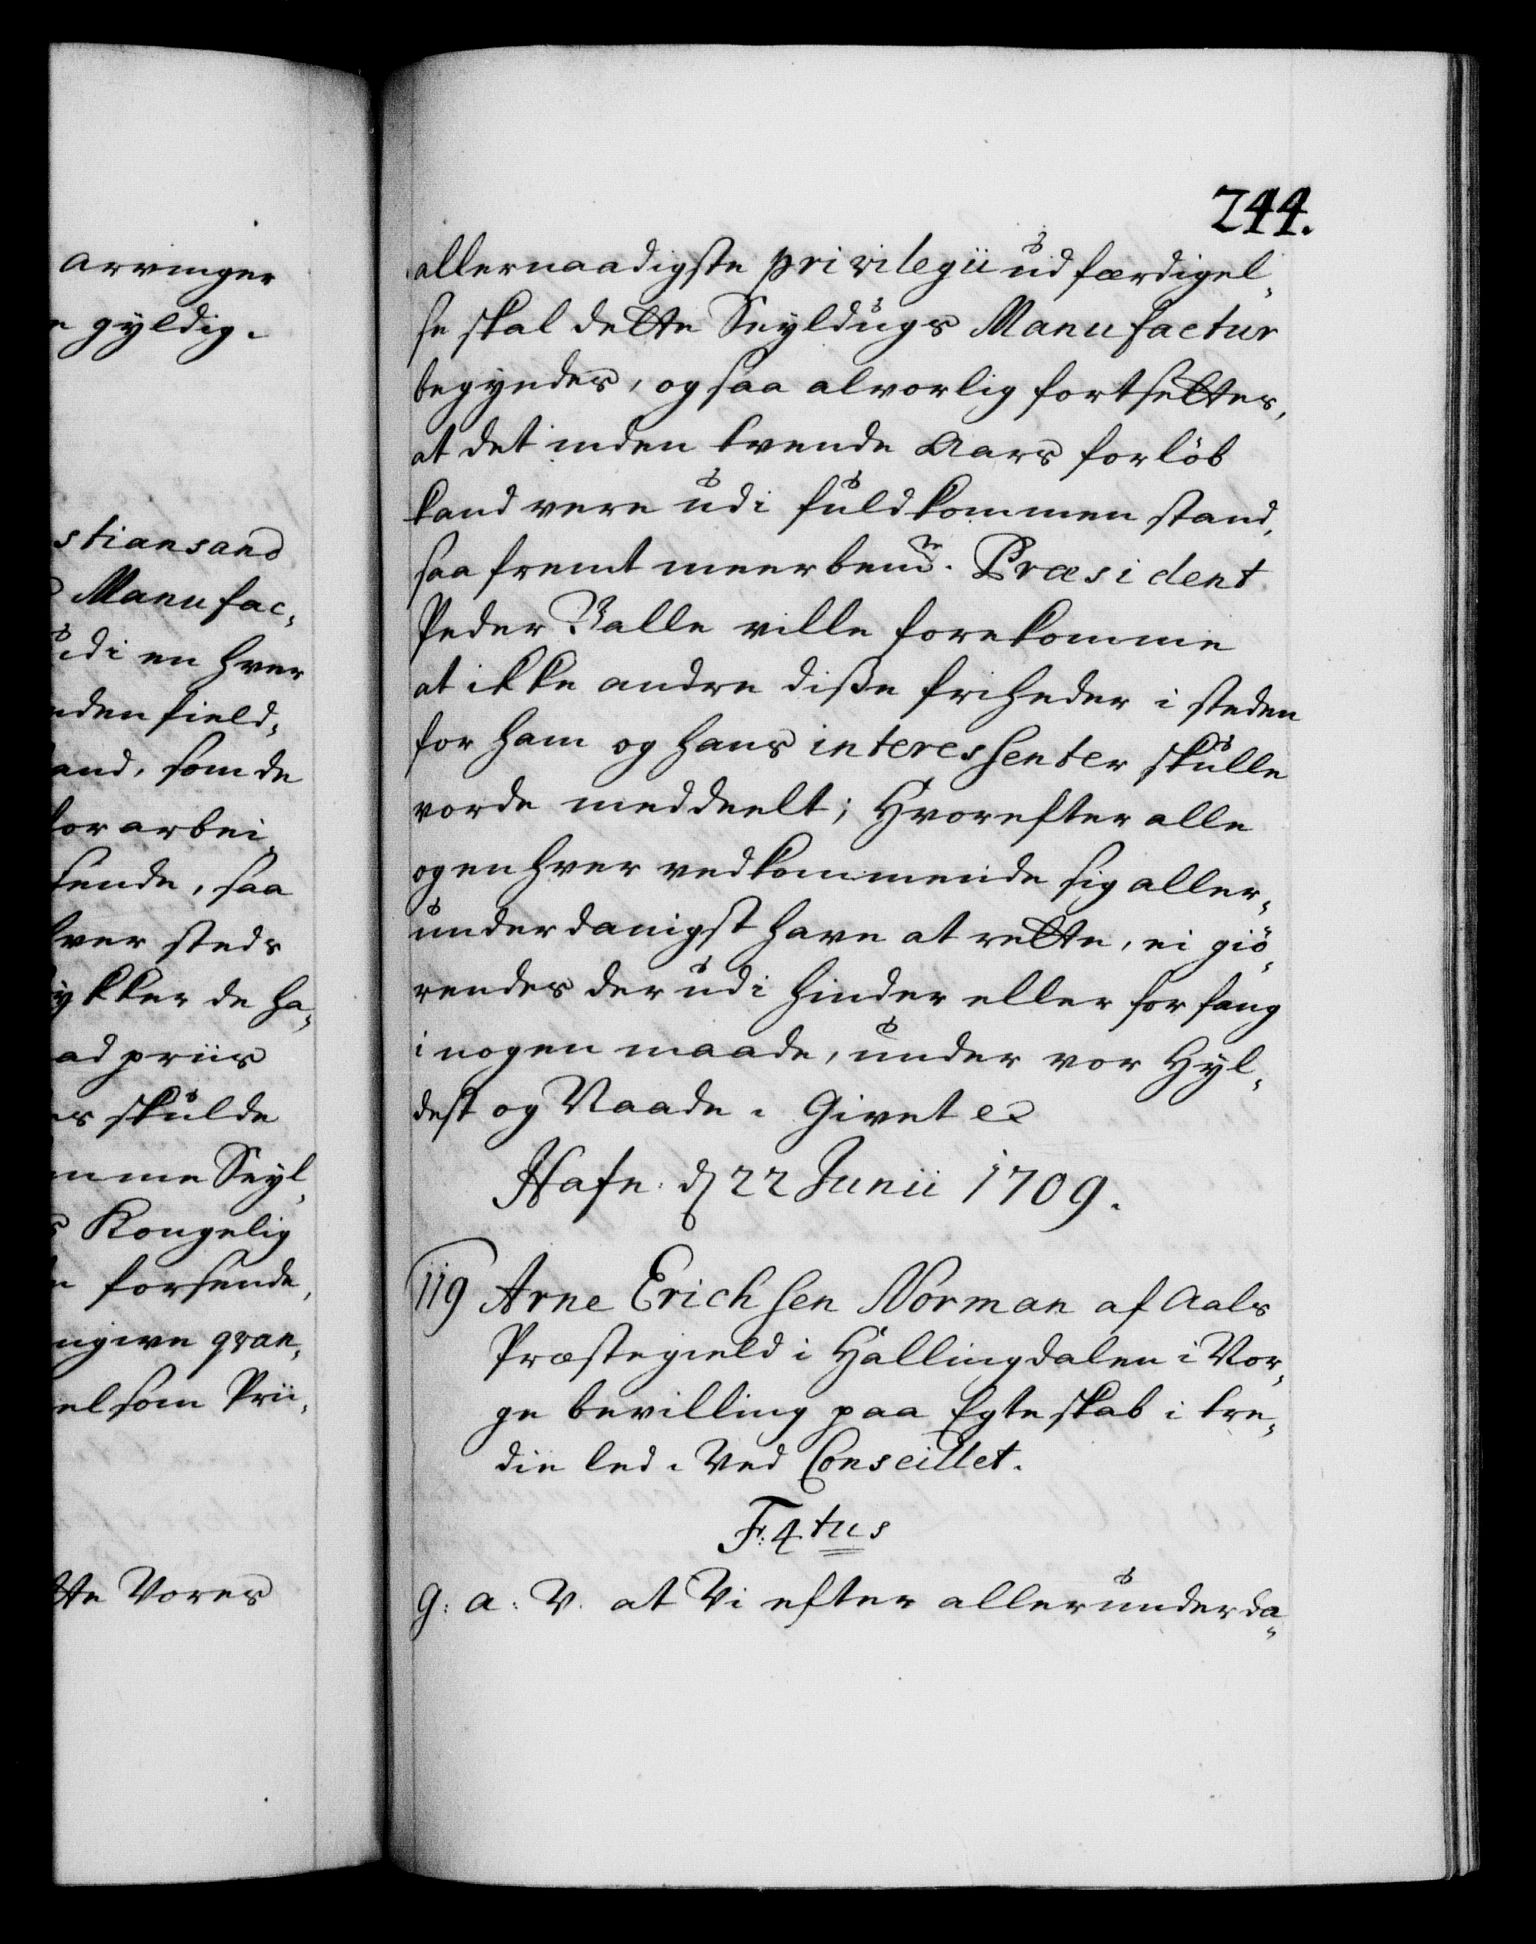 arvinger
gyldig.
stiansand
Manufac¬
udi en hver
den field¬
and, som de
forarbei
sende, saa
hver steds
ykker de ha¬
ad priis
skulde
mme Seyl¬
Kongelig
forsende,
ngive qvan¬
el som Prii¬
tte Vores
244.
allernaadigste privilegii udfærdigel¬
se skal dette Seyldugs Manufactur
begyndes, og saa alvorlig fortsettes,
at det inden tvende Aars forløb
kand vere udi fuldkommen stand,
saa fremt meerbemte. Præsident
Peder Kalle ville forekomme
at ikke andre disse friheder i steden
for ham og hans interessenter skulle
vorde meddeelt; Hvorefter alle
og en hver vedkommende sig aller¬
underdanigst have at rette, ei giö¬
rendes der udi hinder eller forfang
i nogen maade, under vor Hyl¬
dest og Naade. Givet ec
Hafn. d 22 Junii 1709.
119 Arne Erichsen Norman af Aals
Præstegield i Hallingdalen i Nor¬
ge bevilling paa Egteskab i tre¬
die led. Ved Conseillet.
Fr: 4tus
G: a: V. at Vi efter allerunderda¬